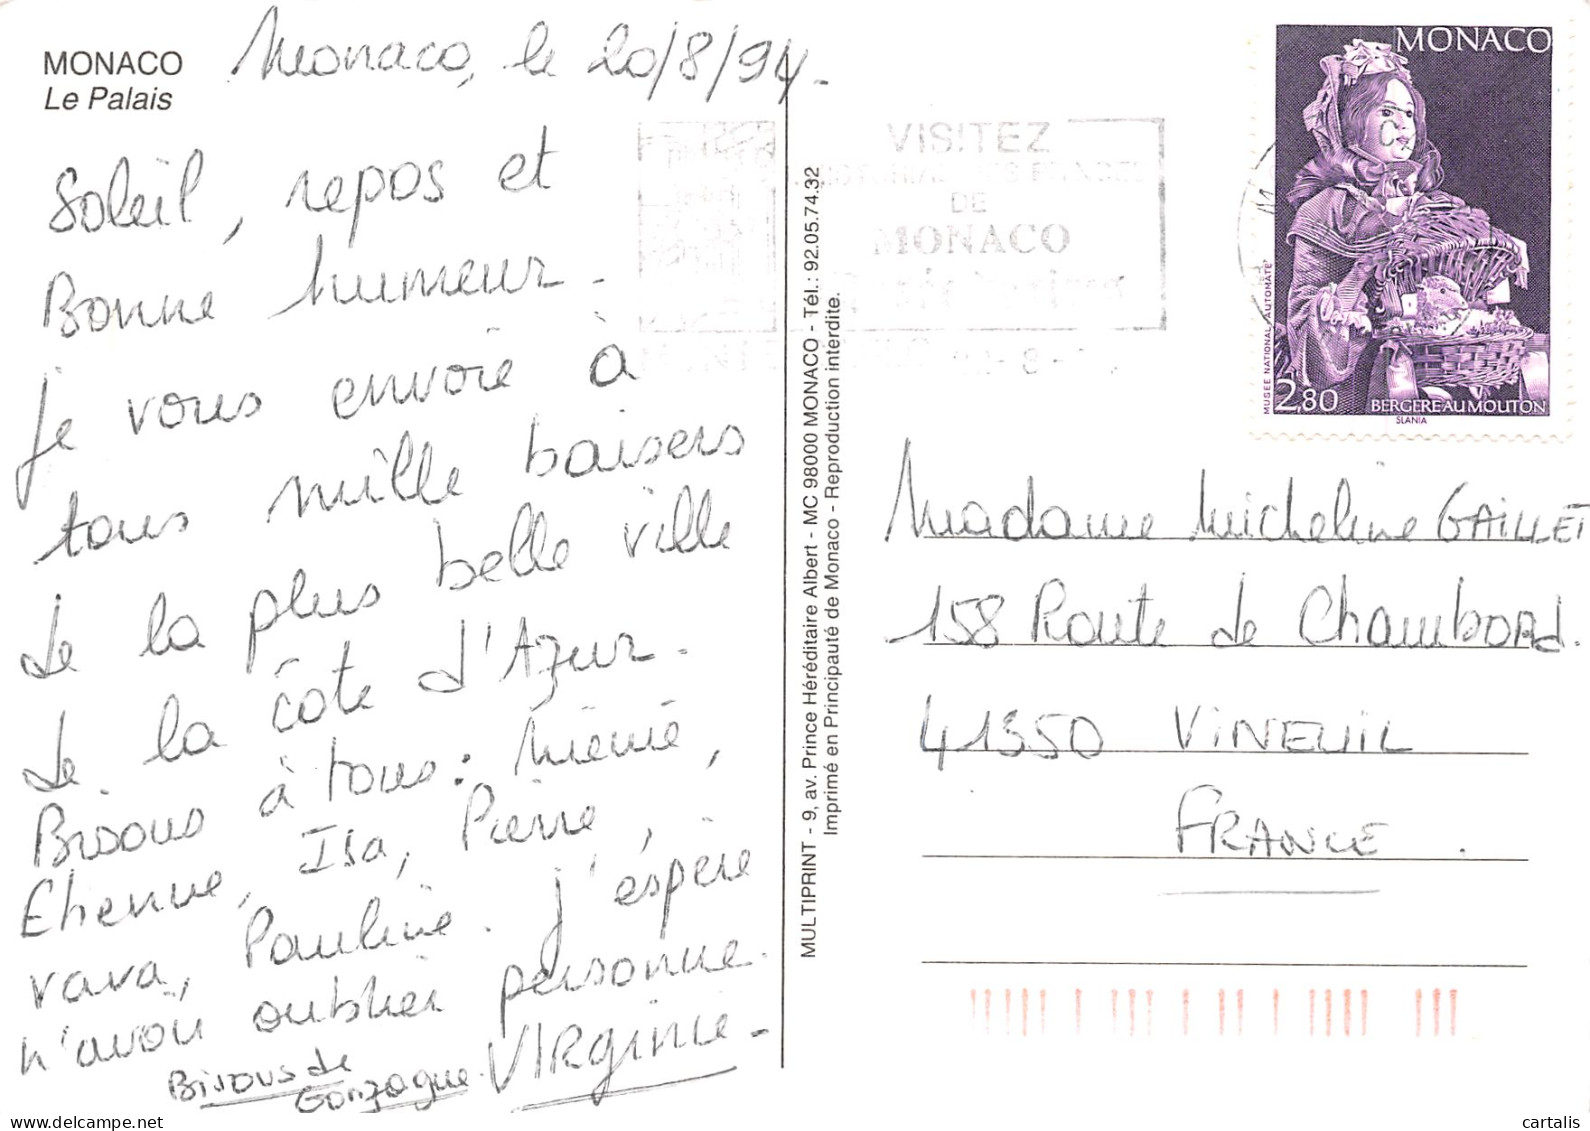 MONACO
Le Palais
Monaco, le 20/8/94.
Soleil, repos et
Bonne humeur.
Je vous envoie à
tous mille baisers
de la plus belle ville
de la côte d'Azur.
Bisous à tous : Mémé,
Etienne, Isa, Pierre,
vava, Pauline. J'espère
n'avoir oublier personne.
VIRginie.
Bisous de
Gonzague.
MULTIPRINT - 9, av. Prince Héréditaire Albert - MC 98000 MONACO - Tél.: 92.05.74.32
Imprimé en Principauté de Monaco - Reproduction interdite.
VISITEZ
DE
MONACO
- 8 -
MONACO
MUSEE NATIONAL "AUTOMATE"
2,80
BERGERE AU MOUTON
SLANIA
Madame Micheline GAILLET
158 Route de Chambord.
41350 ViNEUIL
FRANCE.
cartalis